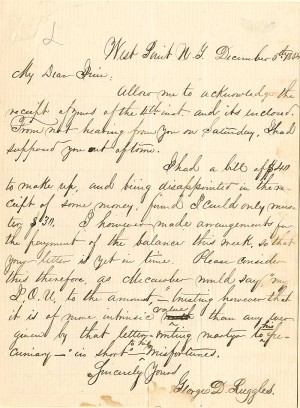 West Point N.Y. December
My Dear Sir:
Allow me to acknowledge the
receipt of yours of the 4th inst. and its inclosed.
From not hearing from you on Saturday, I had
supposed you out of town.
I had a bill of $40
to make up, and being disappointed in the re-
ceipt of some money, found I could only mus-
ter $30. I however made arrangements for
the payment of the balance this week, so that
your letter is yet in time. Please consider
this therefore, as Micawber would say, "my
I.O.U." to the amount, trusting however that
it is of more intrinsic value than any ever
given by that letter-writing martyr to his pe-
cuniary — in short — to his misfortunes.
Sincerely Yours
George D. Ruggles.